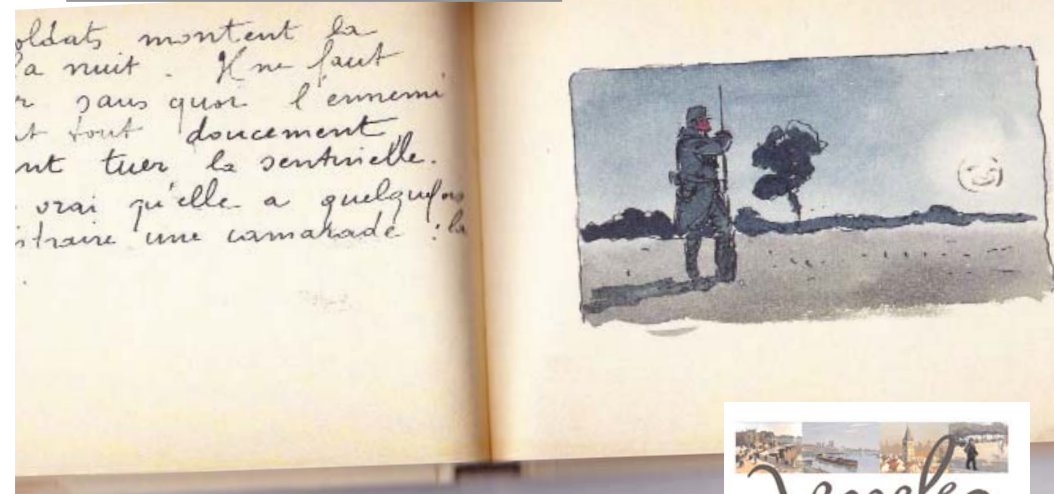 oldats montent la
a nuit. Il ne faut
r sans quoi l'ennemi
t tout doucement,
nt tuer la sentinelle.
vrai qu'elle a quelquefois
straire une camarade : la